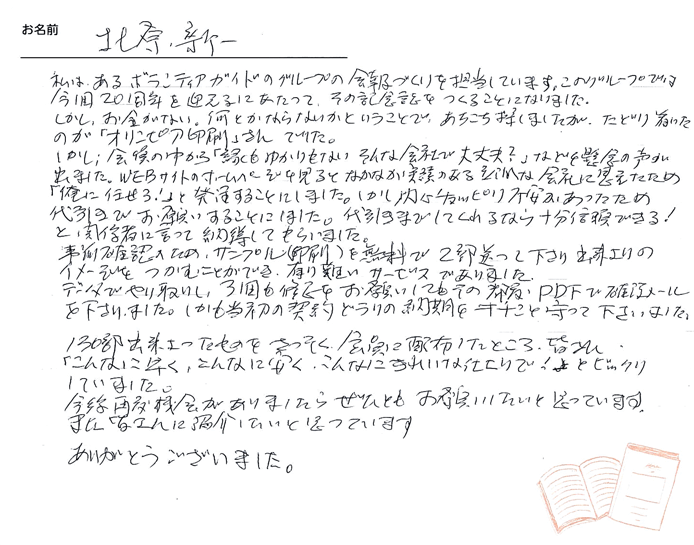 お名前 北原 新一
私は、あるボランティアガイドのグループの会報づくりを担当しています。このグループでは
今回20周年を迎えるにあたって、その記念誌をつくることになりました。
しかし、お金がない。何とかならないかということで、あちこち探しましたが、たどり着いた
のが「オリンピア印刷」さんでした。
しかし、会員の中から「縁もゆかりもないそんな会社で大丈夫?」などと懸念の声が
出ました。WEBサイトのホームページを見るとなかなか実績のある立派な会社に思えたため
「俺に任せろ!」と発注することにしました。しかし内心チョッピリ不安があったため
代引きでお願いすることにしました。代引きまでしてくれるなら十分信頼できる!
と関係者に言って納得してもらいました。
事前確認のため、サンプル(印刷)を無料で2部送って下さり出来上りの
イメージをつかむことができ、有り難いサービスでありました。
データでやり取りし、3回も修正をお願いしてもその都度、PDFで確認メール
を下さいました。しかも当初の契約どうりの納期をキチンと守って下さいました。
130部出来上ったものをさっそく会員に配布したところ、皆さん
「こんなに早く、こんなに安く、こんなにきれいな仕上りで!」とビックリ
していました。
今後再度機会がありましたらぜひともお願いしたいと思っています。
また皆さんに紹介したいと思っています
ありがとうございました。